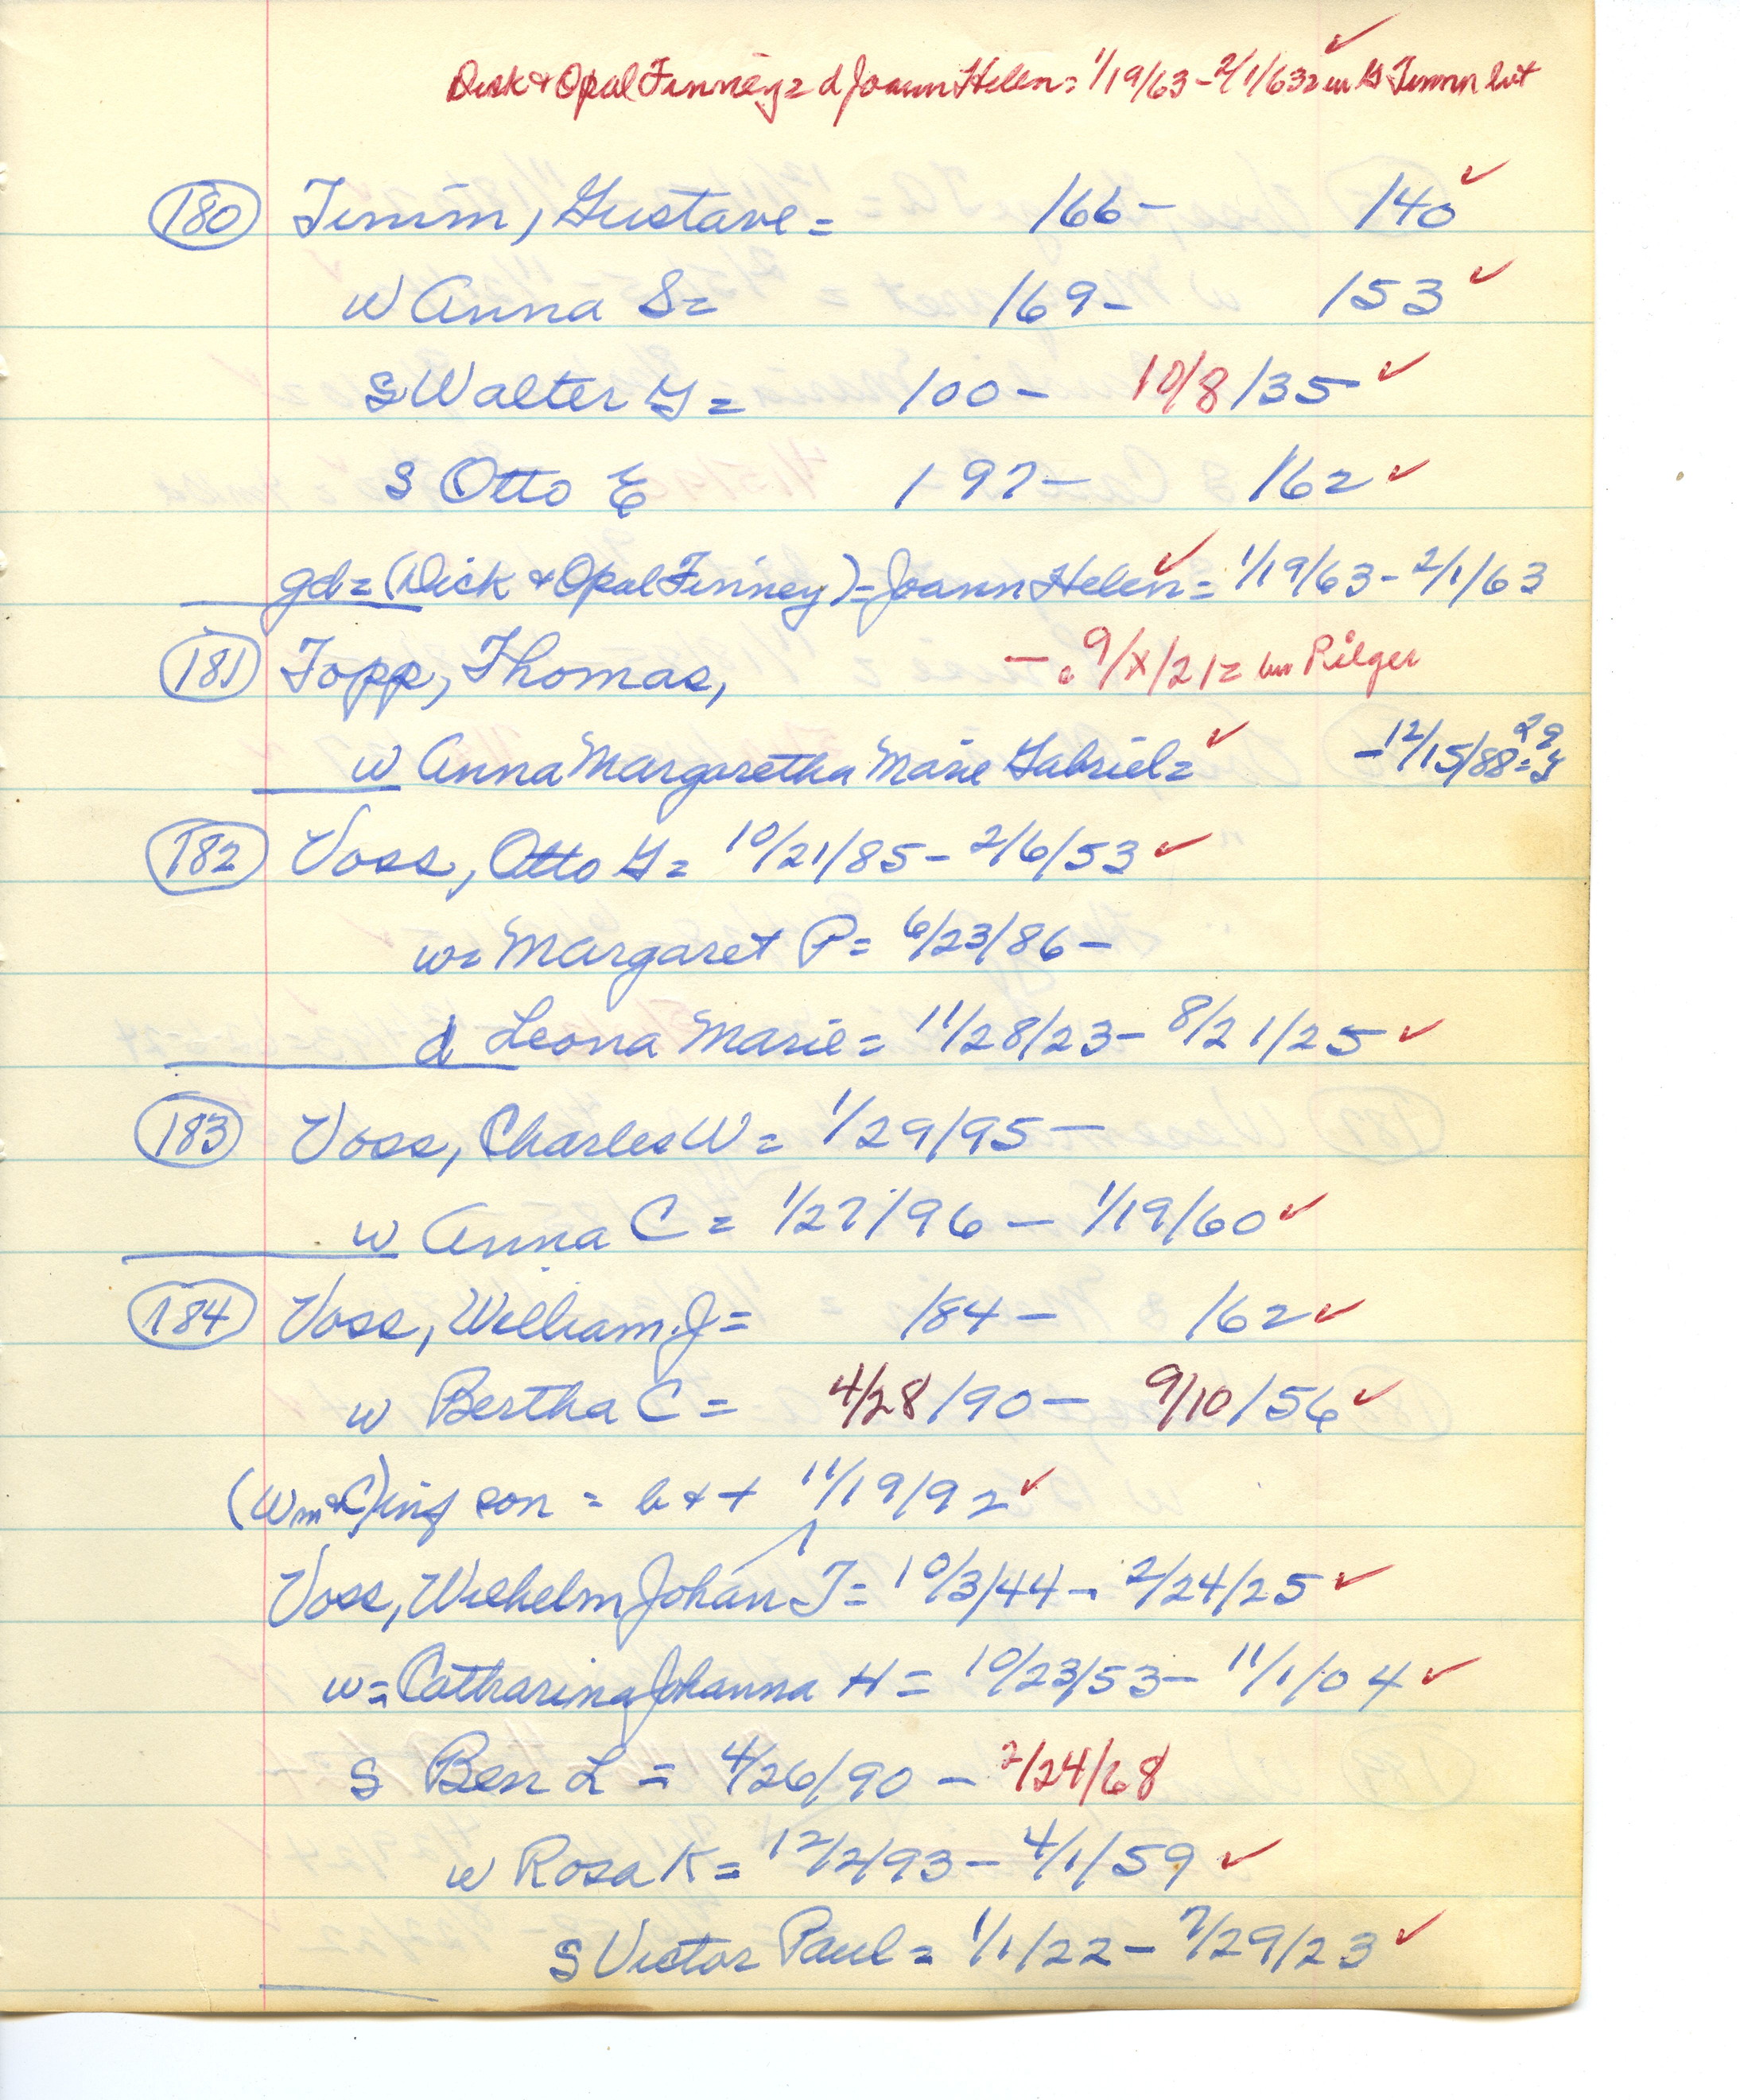 Dick & Opal Finney = d Joann Helen = 1/19/63 - 2/1/63 = in G Timm lot ✓
180 Timm, Gustave = /66 - /40 ✓
w Anna S = /69 - /53 ✓
s Walter G = /00 - 10/8/35 ✓
s Otto E /97 - /62 ✓
gd = (Dick & Opal Finney) = Joann Helen ✓ = 1/19/63 - 2/1/63
181 Topp, Thomas, - 9/x/21 = bur Pilger
w Anna Margaretha Marie Gabriel = ✓ - 12/15/88 = 29 y
182 Voss, Otto G = 10/21/85 - 2/6/53 ✓
w = Margaret P = 6/23/86 -
d Leona Marie = 11/28/23 - 8/21/25 ✓
183 Voss, Charles W = 1/29/95 -
w Anna C = 1/27/96 - 1/19/60 ✓
184 Voss, William J = /84 - /62 ✓
w Bertha C = 4/28/90 - 9/10/56 ✓
(Wm & C) inf son = b & + 11/19/92 ✓
Voss, Wilhelm Johan J = 10/3/44 - 2/24/25 ✓
w = Catharina Johanna H = 10/23/53 - 11/1/04 ✓
s Ben L = 4/26/90 - 2/24/68
w Rosa K = 12/2/93 - 4/1/59 ✓
s Victor Paul = 1/1/22 - 7/29/23 ✓